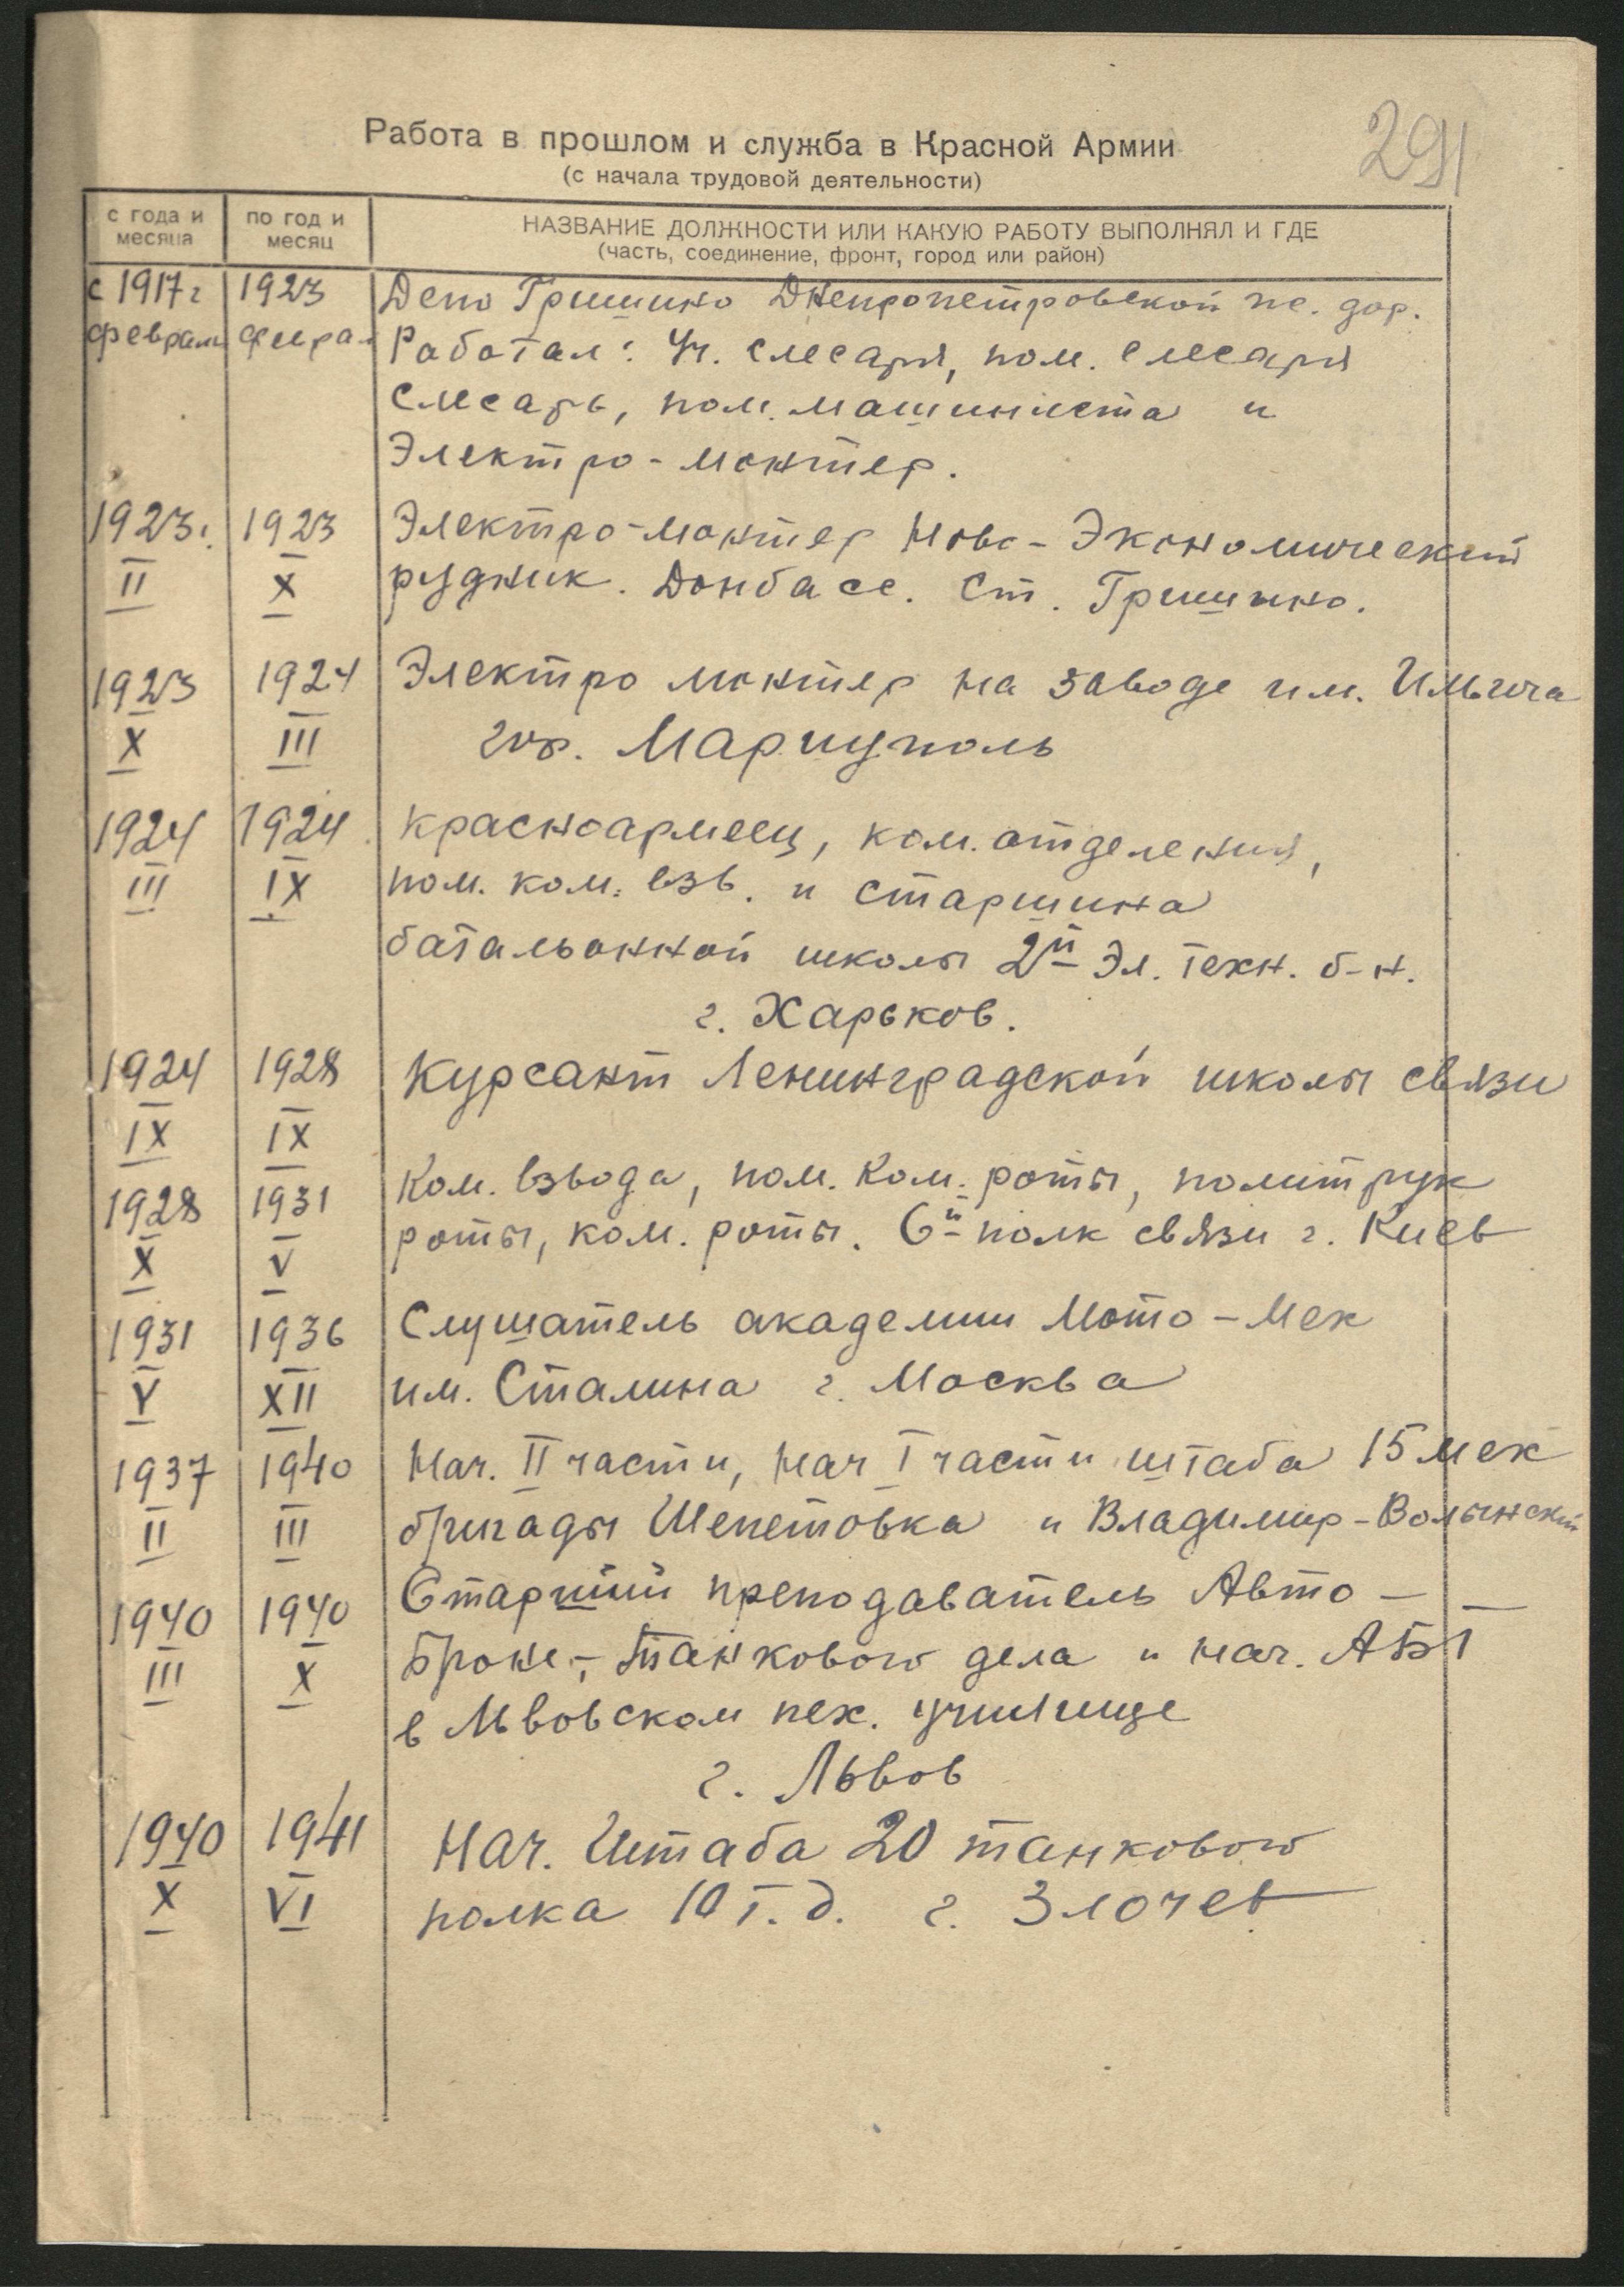 291
Работа в прошлом и служба в Красной Армии
(с начала трудовой деятельности)
с года и месяца
по год и месяц
НАЗВАНИЕ ДОЛЖНОСТИ ИЛИ КАКУЮ РАБОТУ ВЫПОЛНЯЛ И ГДЕ
(часть, соединение, фронт, город или район)
с 1917 г 1923 Депо Гришино Днепропетровской же. дор.
февраль феврал Работал: Уч. слесаря, пом. слесаря
слесарь, пом. машиниста и
Электро-монтер.
1923г. 1923 Электро-монтер Ново-Экономический
II X рудник. Донбасс. Ст. Гришино.
1923 1924 Электро монтер на заводе им. Ильича
X III гор. Мариуполь
1924 1924 Красноармеец, ком. отделения,
III IX пом. ком. взв. и старшина
батальонной школы 2й Эл. техн. б-н.
г. Харьков.
1924 1928 Курсант Ленинградской школы связи
IX IX
1928 1931 Ком. взвода, пом. ком. роты, политрук
X V роты, ком. роты. 6й полк связи г. Киев
1931 1936 Слушатель академии Мото-Мех
V XII им. Сталина г. Москва
1937 1940 Нач. II части, нач I части штаба 15 мех
II III бригады Шепетовка и Владимир-Волынский
1940 1940 Старший преподаватель Авто-
III X Броне-, танкового дела и нач. АБТ
в Львовском пех. училище
г. Львов
1940 1941 Нач. Штаба 20 танкового
X VI полка 10 т. д. г. Злочев